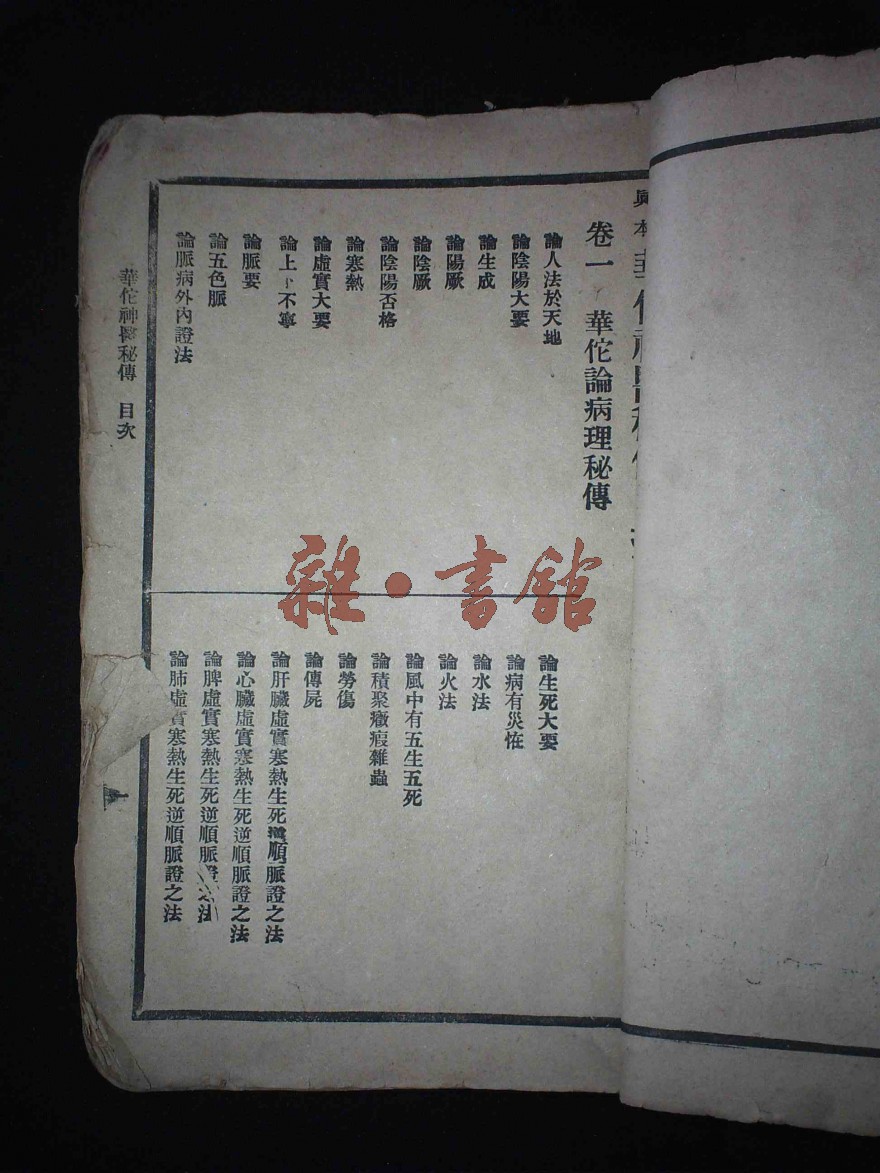 本華佗神醫秘傳
卷一　華佗論病理秘傳
論人法於天地
論陰陽大要
論生成
論陽厥
論陰厥
論陰陽否格
論寒熱
論虛實大要
論上不寧
論脈要
論五色脈
論脈病外內證法
論生死大要
論病有災怪
論水法
論火法
論風中有五生五死
論積聚癥瘕雜蟲
論勞傷
論傳屍
論肝臟虛實寒熱生死逆順脈證之法
論心臟虛實寒熱生死逆順脈證之法
論脾虛實寒熱生死逆順脈證之法
論肺虛實寒熱生死逆順脈證之法
華佗神醫秘傳　目次
雜·書館